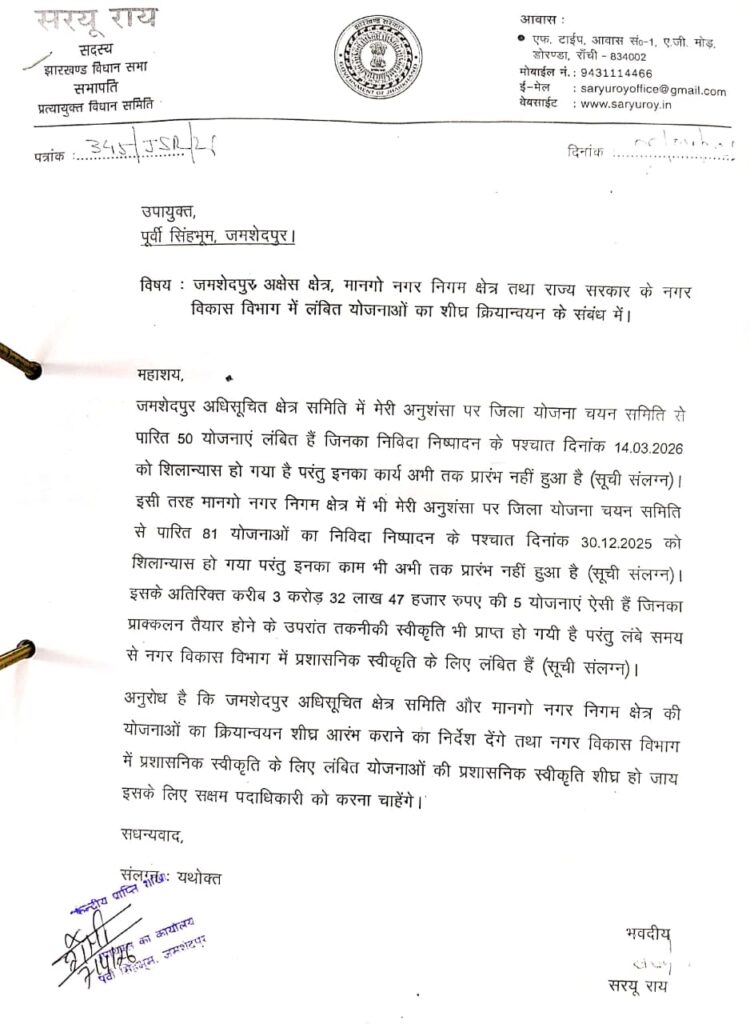 सरयू राय
सदस्य
झारखण्ड विधान सभा
सभापति
प्रत्यायुक्त विधान समिति
आवास :
● एफ. टाईप, आवास सं०-1, ए.जी. मोड़,
डोरण्डा, राँची - 834002
मोबाईल नं. : 9431114466
ई-मेल : saryuroyoffice@gmail.com
वेबसाईट : www.saryuroy.in
पत्रांक : 345/JSR/26
दिनांक
उपायुक्त,
पूर्वी सिंहभूम, जमशेदपुर।
विषय : जमशेदपुर अक्षेस क्षेत्र, मानगो नगर निगम क्षेत्र तथा राज्य सरकार के नगर
विकास विभाग में लंबित योजनाओं का शीघ्र क्रियान्वयन के संबंध में।
महाशय,
जमशेदपुर अधिसूचित क्षेत्र समिति में मेरी अनुशंसा पर जिला योजना चयन समिति से
पारित 50 योजनाएं लंबित हैं जिनका निविदा निष्पादन के पश्चात दिनांक 14.03.2026
को शिलान्यास हो गया है परंतु इनका कार्य अभी तक प्रारंभ नहीं हुआ है (सूची संलग्न)।
इसी तरह मानगो नगर निगम क्षेत्र में भी मेरी अनुशंसा पर जिला योजना चयन समिति
से पारित 81 योजनाओं का निविदा निष्पादन के पश्चात दिनांक 30.12.2025 को
शिलान्यास हो गया परंतु इनका काम भी अभी तक प्रारंभ नहीं हुआ है (सूची संलग्न)।
इसके अतिरिक्त करीब 3 करोड़ 32 लाख 47 हजार रुपए की 5 योजनाएं ऐसी हैं जिनका
प्राक्कलन तैयार होने के उपरांत तकनीकी स्वीकृति भी प्राप्त हो गयी है परंतु लंबे समय
से नगर विकास विभाग में प्रशासनिक स्वीकृति के लिए लंबित हैं (सूची संलग्न)।
अनुरोध है कि जमशेदपुर अधिसूचित क्षेत्र समिति और मानगो नगर निगम क्षेत्र की
योजनाओं का क्रियान्वयन शीघ्र आरंभ कराने का निर्देश देंगे तथा नगर विकास विभाग
में प्रशासनिक स्वीकृति के लिए लंबित योजनाओं की प्रशासनिक स्वीकृति शीघ्र हो जाय
इसके लिए सक्षम पदाधिकारी को करना चाहेंगे।
सधन्यवाद,
संलग्न : यथोक्त
केन्द्रीय प्राप्ति शाखा
का कार्यालय
पूर्वी सिंहभूम, जमशेदपुर
भवदीय
सरयू राय